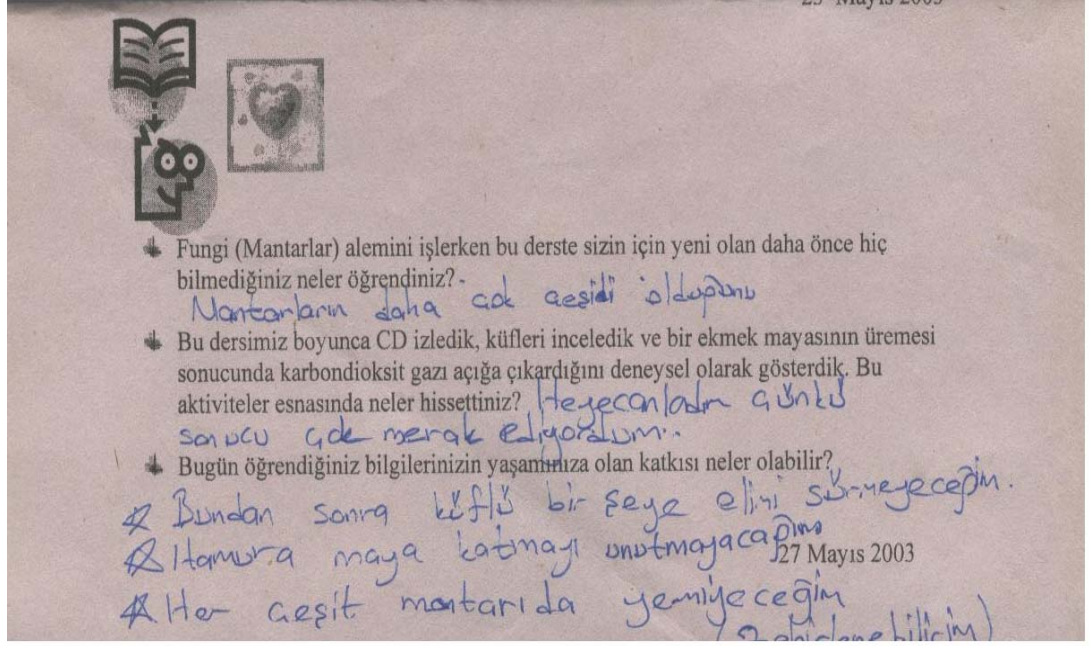 23 Mayıs 2003
Fungi (Mantarlar) alemini işlerken bu derste sizin için yeni olan daha önce hiç
bilmediğiniz neler öğrendiniz? -
Mantarların daha çok çeşidi olduğunu
Bu dersimiz boyunca CD izledik, küfleri inceledik ve bir ekmek mayasının üremesi
sonucunda karbondioksit gazı açığa çıkardığını deneysel olarak gösterdik. Bu
aktiviteler esnasında neler hissettiniz? Heyecanladım çünkü
sonucu çok merak ediyordum..
Bugün öğrendiğiniz bilgilerinizin yaşamınıza olan katkısı neler olabilir?
Bundan sonra küflü bir şeye elimi sürmeyeceğim.
Hamura maya katmayı unutmayacağım
27 Mayıs 2003
Her çeşit mantarı da yemiyeceğim
(Zehirlenebilirim)